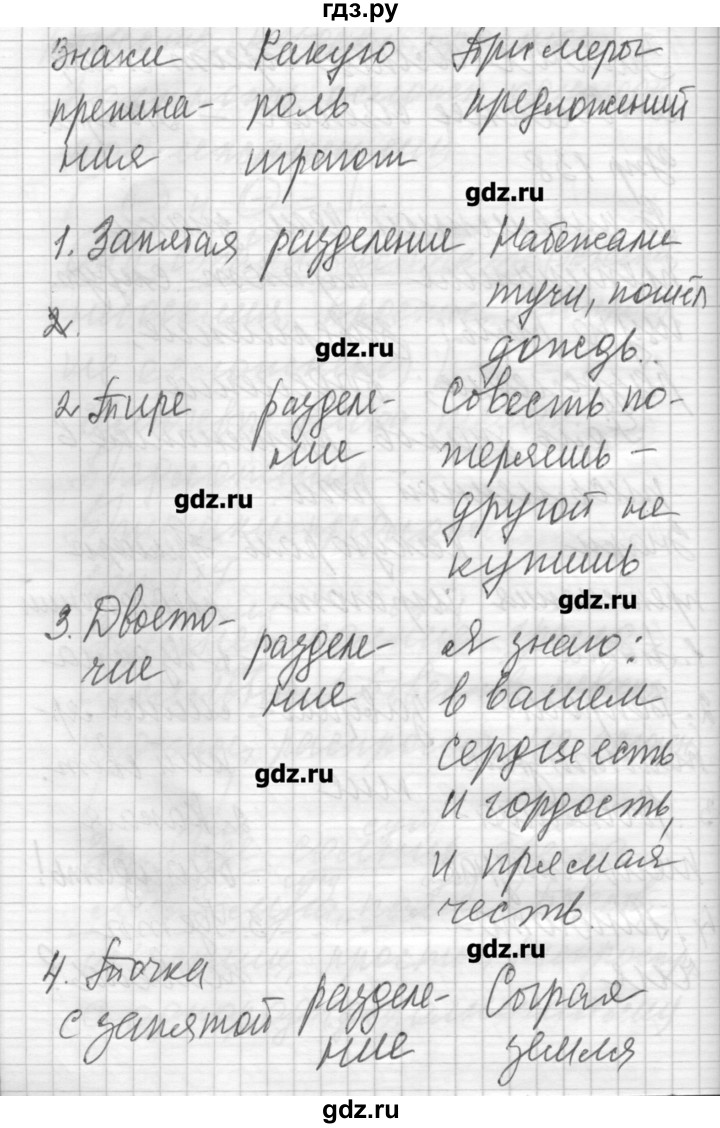 гдз.ру
Знаки Какую Примеры
препина- роль предложений
ния играют
gdz.ru
1. Запятая разделение Набежали
тучи, пошёл
2.
gdz.ru
дождь.
2 Тире разделе- Совесть по-
ние теряешь –
gdz.ru
другой не
купишь
gdz.ru
3. Двоето- разделе- Я знаю:
чие ние в вашем
сердце есть
gdz.ru
и гордость,
и прямая
честь.
gdz.ru
4. Точка разделе- Сырая
с запятой ние земля
gdz.ru